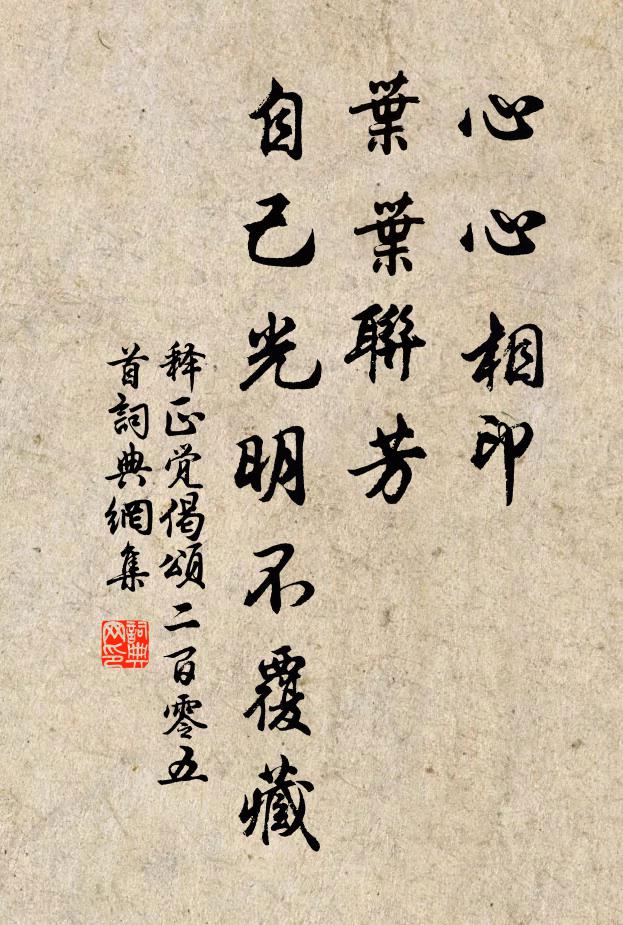 心心相印
葉葉聯芳
自己光明不覆藏
释正覚偈頌二百零五
首詞典網集
詞典
网印